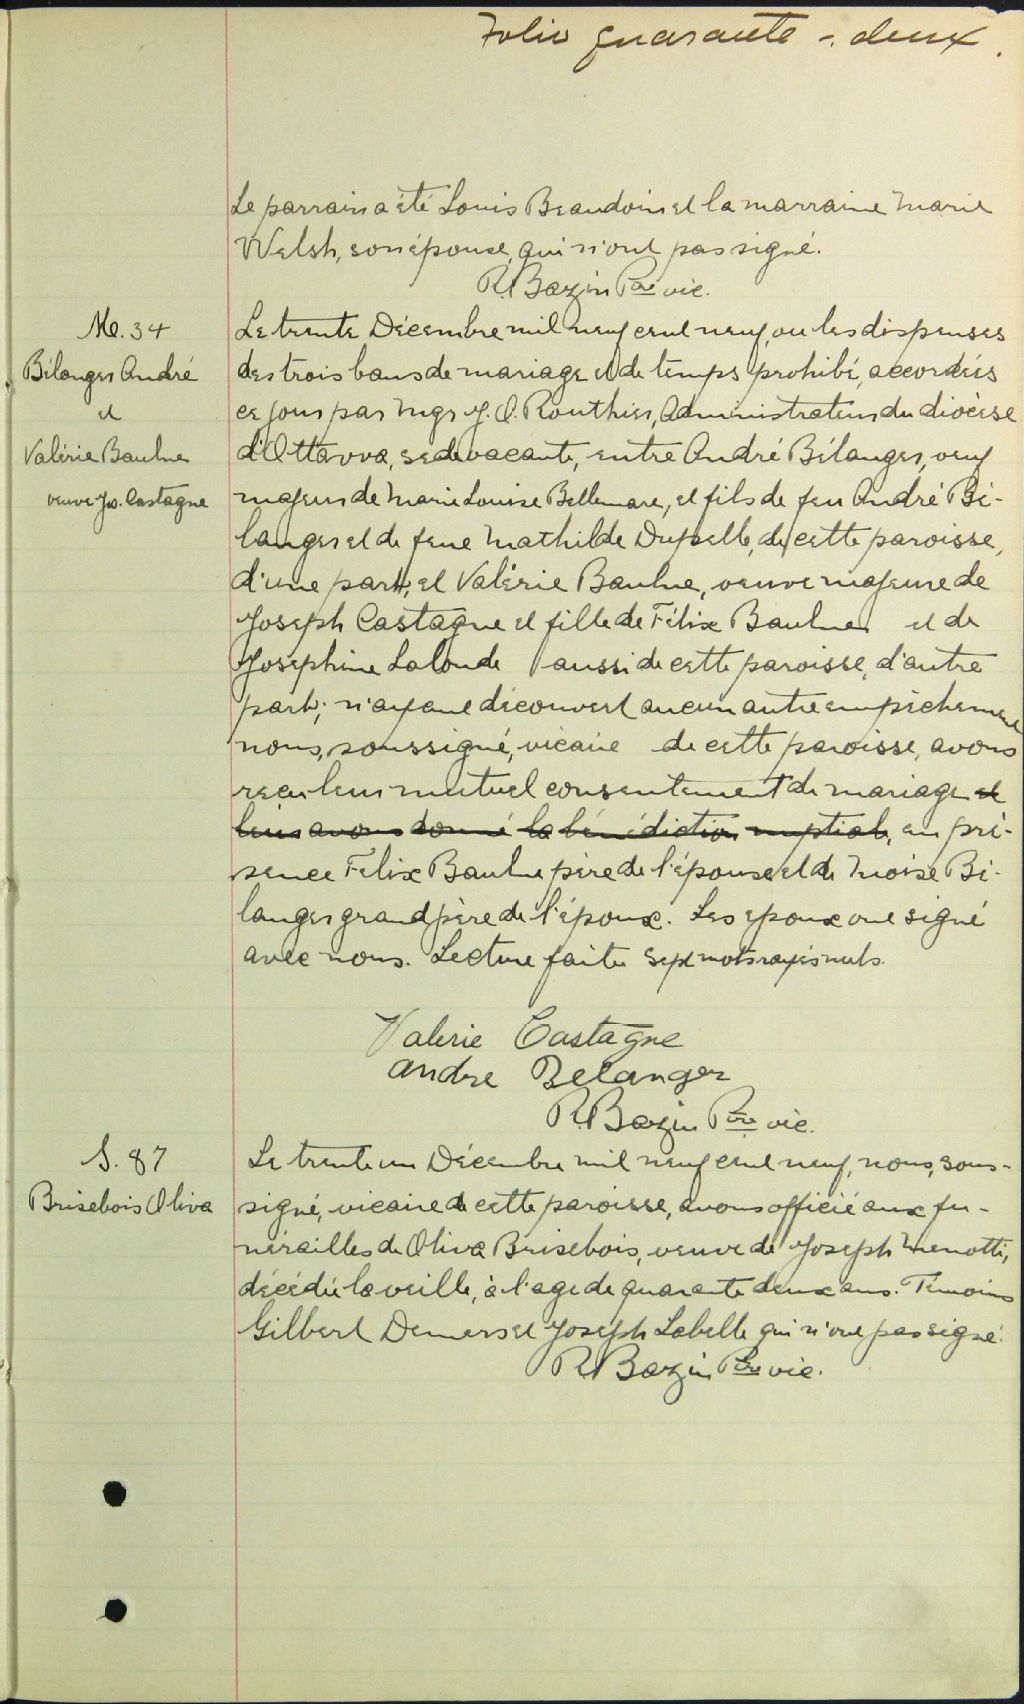 Folio quarante-deux.
Le parrain a été Louis Beaudoin et la marraine Marie
Welsh, son épouse, qui n'ont pas signé.
R. Bazin Ptre vic.
M. 34
Bélanger André
et
Valérie Baulne
veuve Js. Castagne
Le trente Décembre mil neuf cent neuf, vu les dispenses
des trois bans de mariage et de temps prohibé, accordées
ce jour par Mgr J. O. Routhier, Administrateur du diocèse
d'Ottawa, sede vacante, entre André Bélanger, veuf
majeur de Marie Louise Bellemare, et fils de feu André Bé-
langer et de feue Mathilde Dupelle, de cette paroisse,
d'une part, et Valérie Baulne, veuve majeure de
Joseph Castagne et fille de Félix Baulne et de
Josephine Lalonde aussi de cette paroisse, d'autre
part; n'ayant découvert aucun autre empêchement
nous, soussigné, vicaire de cette paroisse, avons
reçu leur mutuel consentement de mariage et
leur avons donné la bénédiction nuptiale, en pré-
sence Felix Baulne père de l'épouse et de Moise Bé-
langer grand père de l'époux. Les epoux ont signé
avec nous. Lecture faite sept mots rayés nuls.
Valerie Castagne
Andre Belanger
R. Bazin Ptre vic.
S. 87
Brisebois Oliva
Le trente un Décembre mil neuf cent neuf, nous, sous-
signé, vicaire de cette paroisse, avons officié aux fu-
nérailles de Oliva Brisebois, veuve de Joseph Menotti,
décédée la veille, à l'age de quarante deux ans. Témoins
Gilbert Demers et Joseph Labelle qui n'ont pas signé.
R. Bazin Ptre vic.